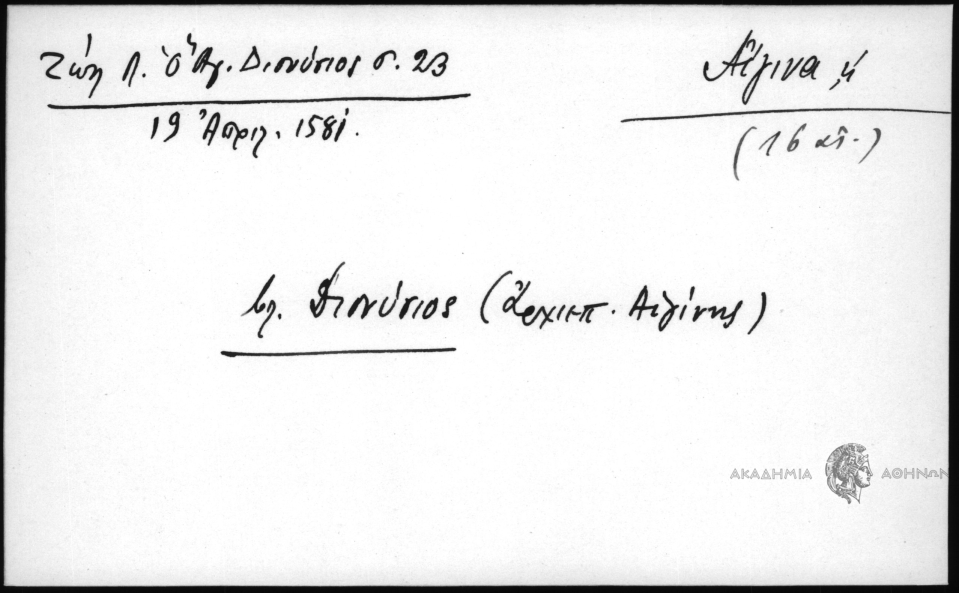 Ζώη Λ. Ὁ Ἅγ. Διονύσιος σ. 23
19 Ἀπριλ. 1581.
Αἴγινα, ἡ
(16 αἰ.)
βλ. Διονύσιος (ἀρχιεπ. Αἰγίνης)
ΑΚΑΔΗΜΙΑ ΑΘΗΝΩΝ